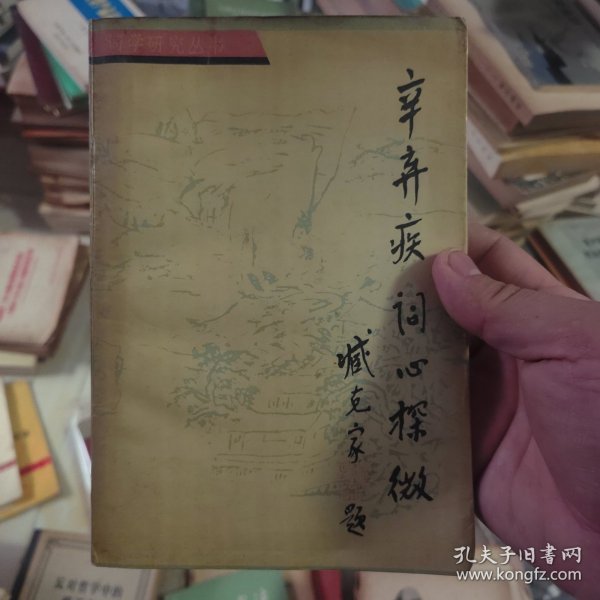 词学研究丛书
辛弃疾词心探微
臧克家题
孔夫子旧书网
www.kongfz.com